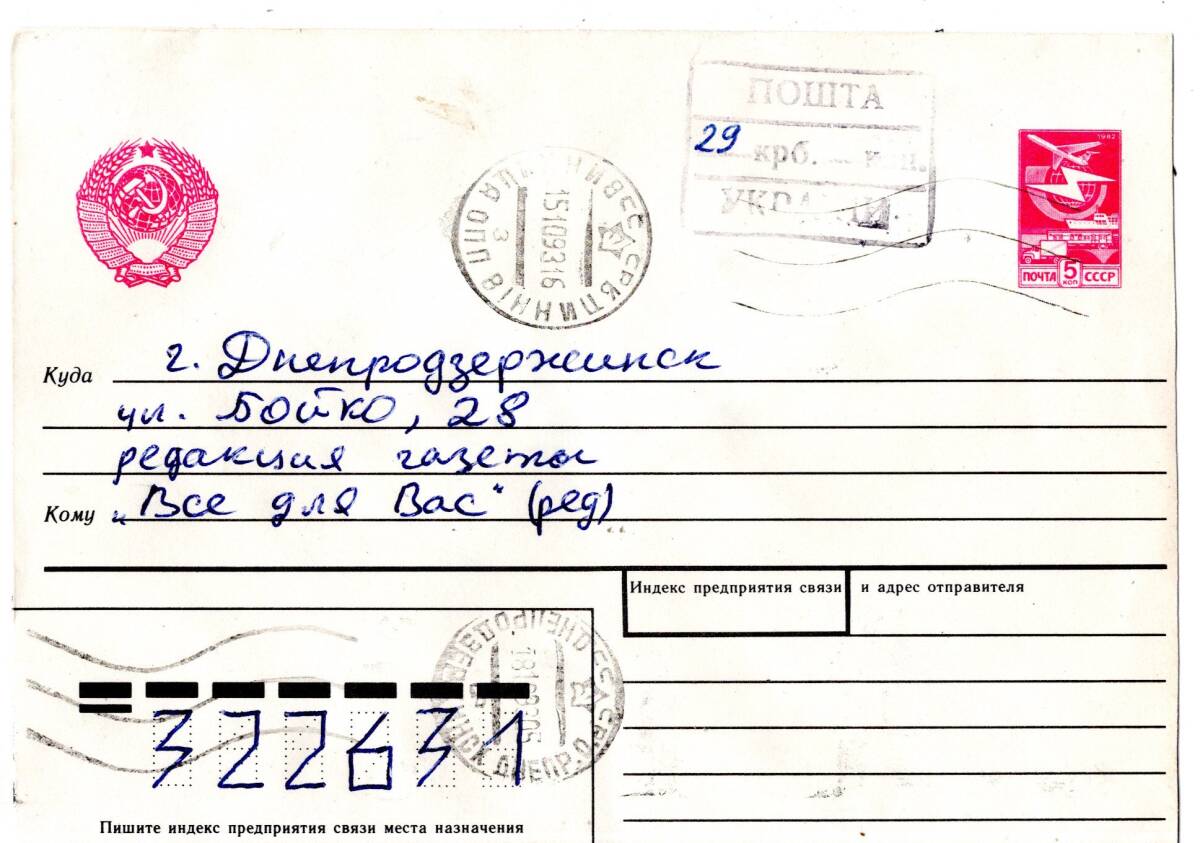 ПОШТА
29 крб. коп.
УКРАЇНИ
1982
ПОЧТА 5 КОП СССР
ВІННИЦЯ ОПП 3
15 10 93 16
Куда г. Днепродзержинск
ул. Бойко, 28
редакция газеты
Кому „Все для Вас“ (ред)
Индекс предприятия связи и адрес отправителя
322631
Пишите индекс предприятия связи места назначения